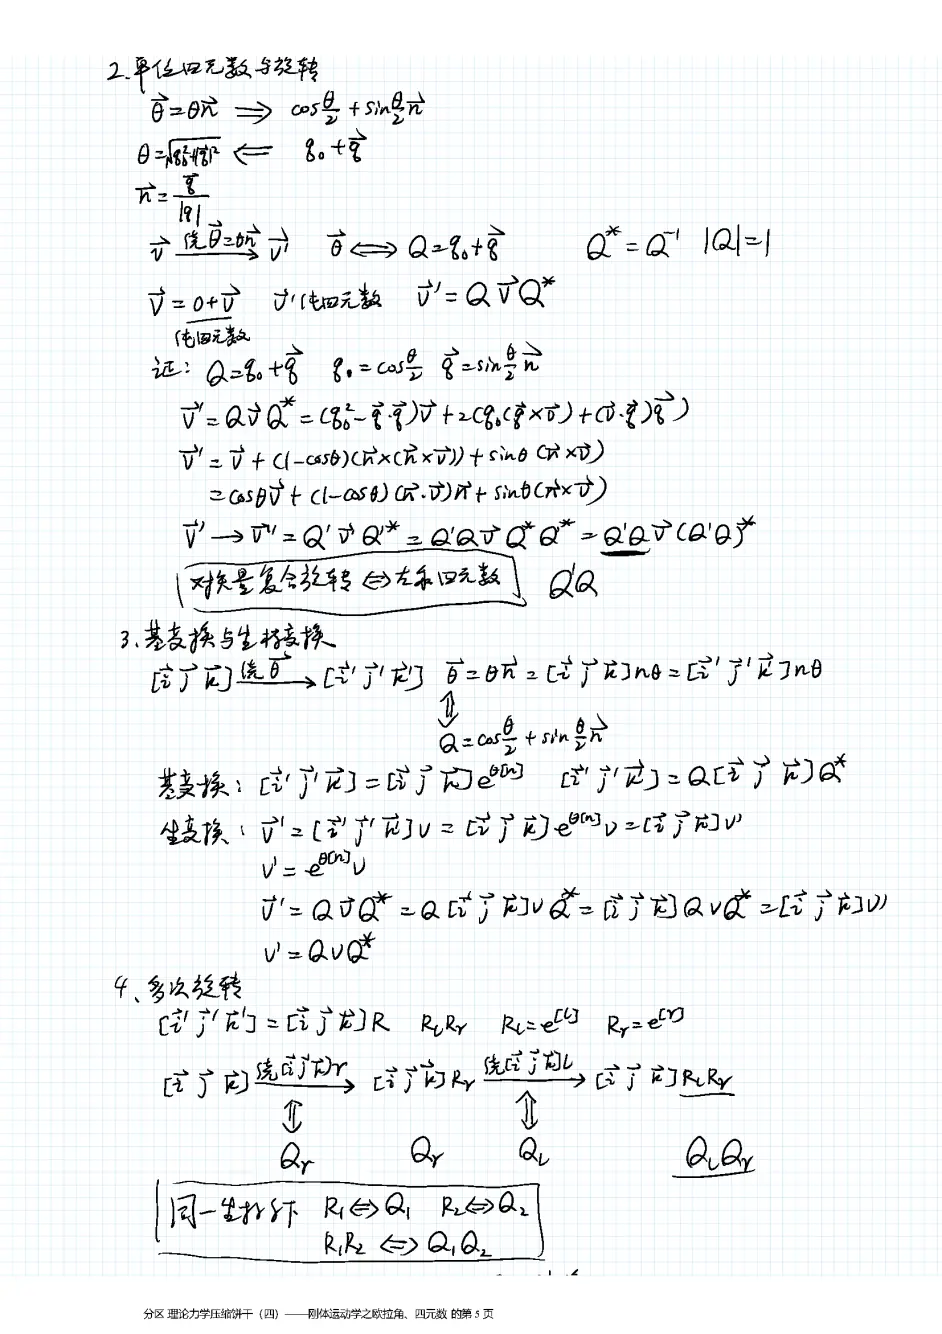 2、单位四元数与旋转
θ⃗=θn⃗ ⟹ cos θ/2 + sin θ/2 n⃗
⟸ q₀+q⃗
n⃗ = q⃗/|q|
v⃗ 绕θ⃗=θn⃗ → v⃗' θ⃗ ⟺ Q=q₀+q⃗ Q*=Q⁻¹ |Q|=1
v⃗=0+v⃗ v⃗'纯四元数 v⃗'=Qv⃗Q*
纯四元数
证: Q=q₀+q⃗ q₀=cos θ/2 q⃗=sin θ/2 n⃗
v⃗'=Qv⃗Q*=(q₀²-q⃗·q⃗)v⃗+2(q₀(q⃗×v⃗)+(v⃗·q⃗)q⃗)
v⃗'=v⃗+(1-cosθ)(n⃗×(n⃗×v⃗))+sinθ(n⃗×v⃗)
=cosθv⃗+(1-cosθ)(n⃗·v⃗)n⃗+sinθ(n⃗×v⃗)
v⃗'→v⃗''=Q'v⃗'Q'*=Q'Qv⃗Q*Q'*=Q'Qv⃗(Q'Q)*
对矢量复合旋转⟺左乘四元数 Q'Q
3、基变换与坐标变换
[i⃗ j⃗ k⃗] 绕θ⃗ → [i⃗' j⃗' k⃗'] θ⃗=θn⃗=[i⃗ j⃗ k⃗]nθ=[i⃗' j⃗' k⃗']nθ
⇕
Q=cos θ/2 + sin θ/2 n⃗
基变换: [i⃗' j⃗' k⃗']=[i⃗ j⃗ k⃗]e^θ[n] [i⃗' j⃗' k⃗']=Q[i⃗ j⃗ k⃗]Q*
坐变换: v⃗'=[i⃗' j⃗' k⃗']v=[i⃗ j⃗ k⃗]e^θ[n]v=[i⃗ j⃗ k⃗]v'
v'=e^θ[n]v
v⃗'=Qv⃗Q*=Q[i⃗ j⃗ k⃗]vQ*=[i⃗ j⃗ k⃗]QvQ*=[i⃗ j⃗ k⃗]v'
v'=QvQ*
4、多次旋转
[i⃗' j⃗' k⃗']=[i⃗ j⃗ k⃗]R RₗRᵣ Rₗ=e^[l] Rᵣ=e^[r]
[i⃗ j⃗ k⃗] 绕[i⃗ j⃗ k⃗]r → [i⃗ j⃗ k⃗]Rᵣ 绕[i⃗ j⃗ k⃗]l → [i⃗ j⃗ k⃗]RₗRᵣ
⇕ ⇕
Qᵣ Qᵣ Qₗ QₗQᵣ
同一坐标系下 R₁⟺Q₁ R₂⟺Q₂
R₁R₂ ⟺ Q₁Q₂
分区 理论力学压缩饼干（四）——刚体运动学之欧拉角、四元数 的第 5 页